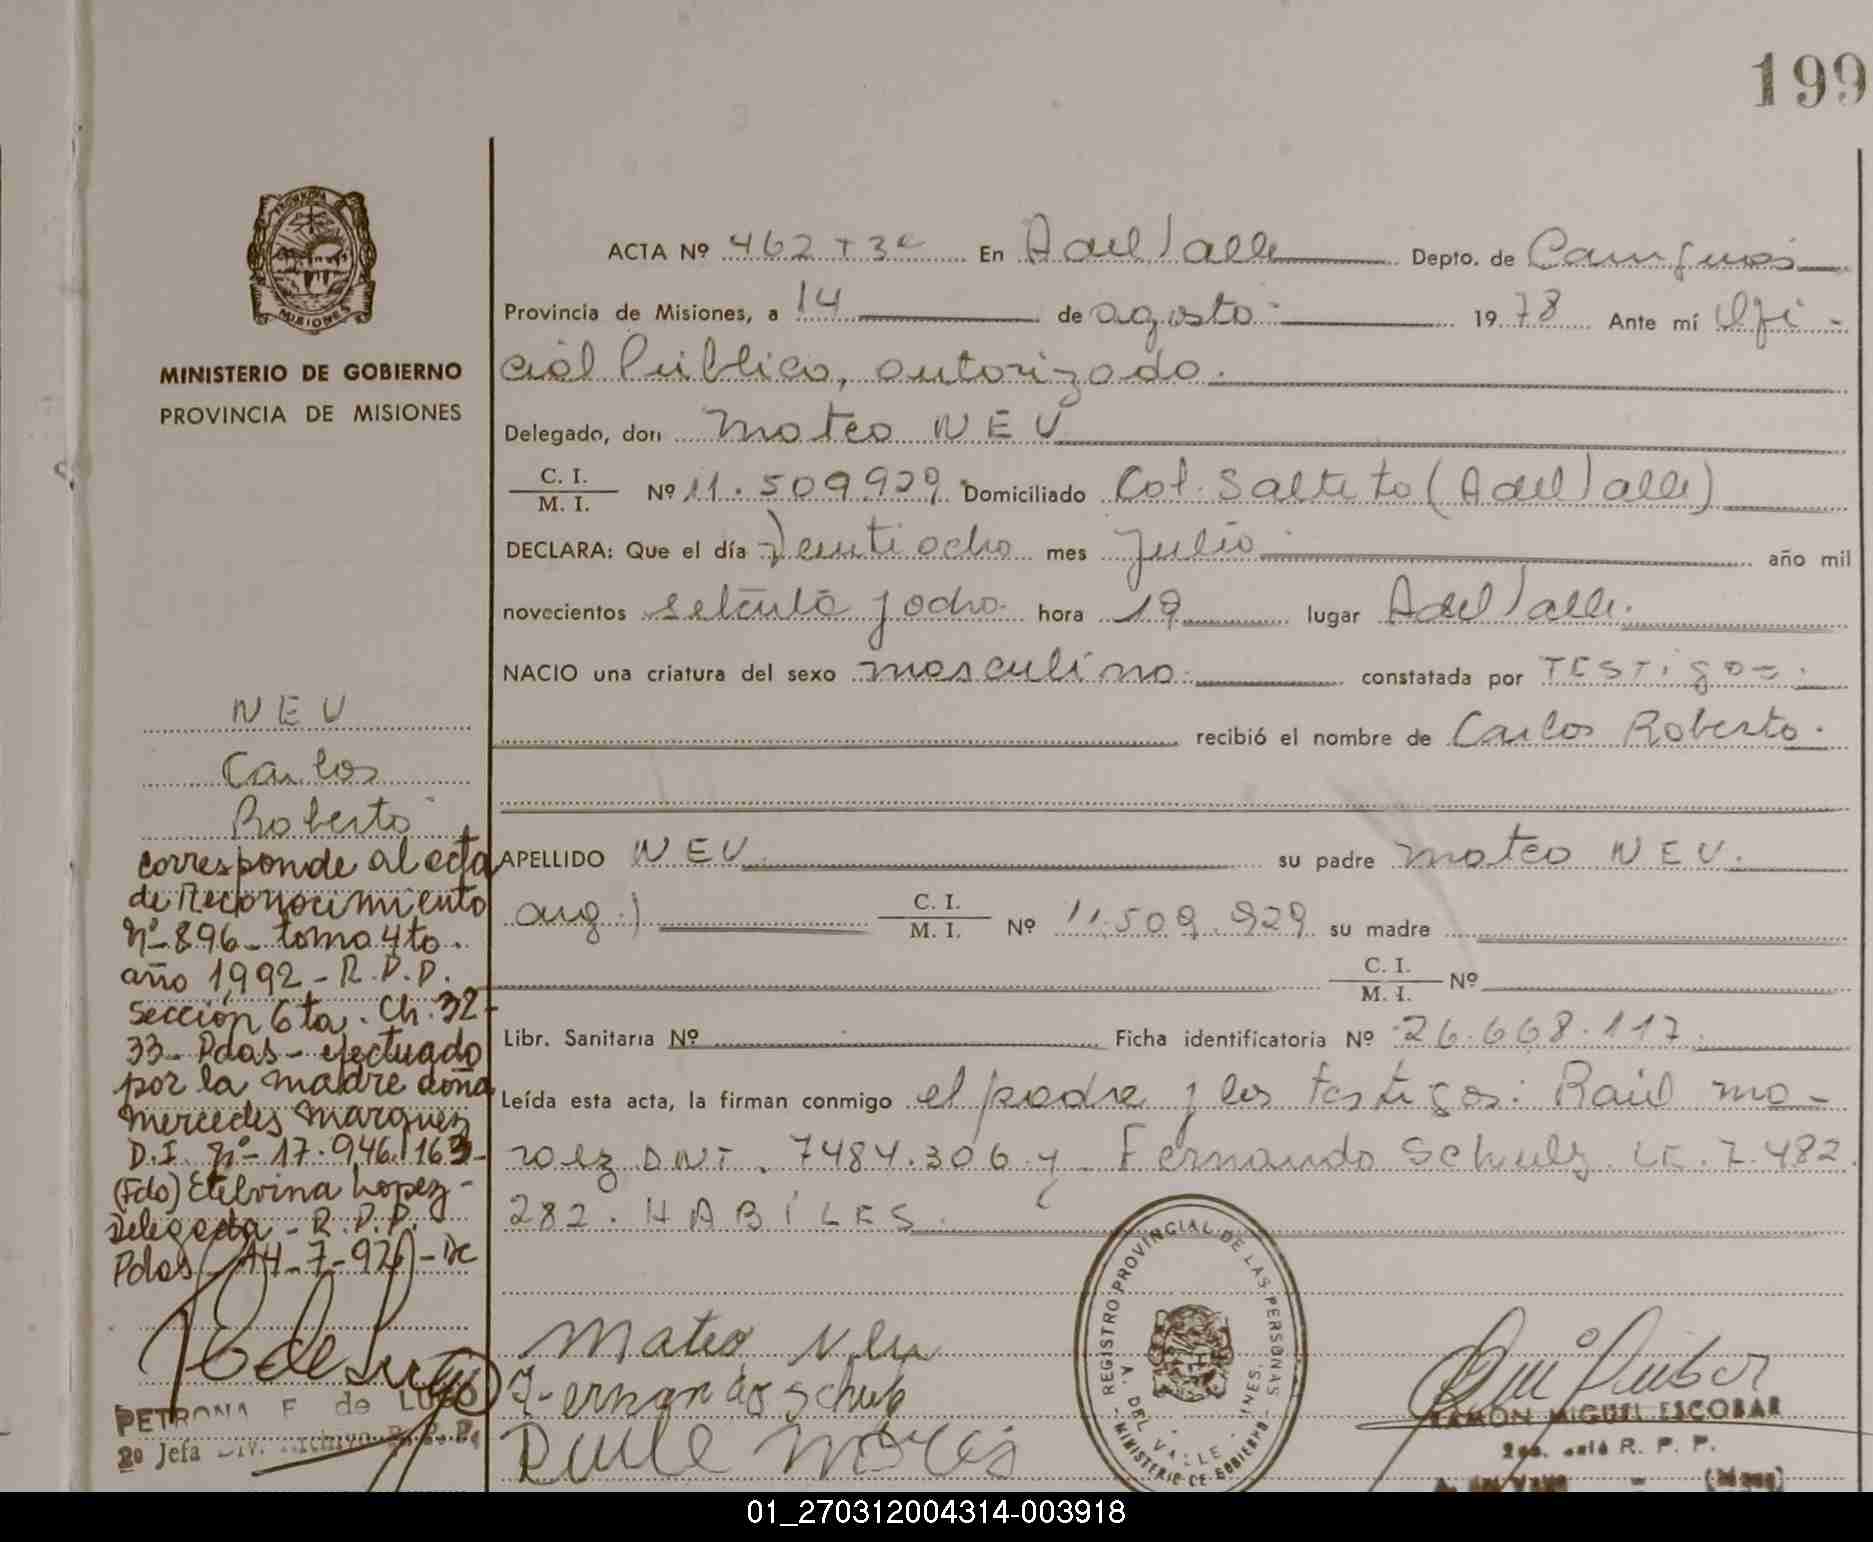 199
ACTA Nº 462 T 3º En A del Valle Depto. de Cainguás
Provincia de Misiones, a 14 de agosto 1978 Ante mí Ofi-
cial Público, autorizado.
MINISTERIO DE GOBIERNO
PROVINCIA DE MISIONES
Delegado, don Mateo NEU
C. I.
M. I. Nº 11.509929 Domiciliado Col. Saltito (A del Valle)
DECLARA: Que el día Veintiocho mes Julio año mil
novecientos setenta y ocho hora 19 lugar A del Valle.
NACIO una criatura del sexo masculino constatada por TESTigos.
recibió el nombre de Carlos Roberto.
NEU
Carlos
Roberto
APELLIDO NEU su padre Mateo NEU.
arg.) C. I.
M. I. Nº 11.509.929 su madre
C. I.
M. I. Nº
Libr. Sanitaria Nº Ficha identificatoria Nº 26.668.117
Leída esta acta, la firman conmigo el padre y los testigos: Raúl Mo-
raez DNI. 7484.306 y Fernando Schulz. LE. 7.482.
282. HABÍLES.
corresponde al acta
de Reconocimiento
Nº 896 - tomo 4to.
año 1992 - R.D.P.
Sección 6ta. Ch. 32-
33- Pdas - efectuado
por la madre doña
Mercedes Marquez
D.I. Nº 17.946.163-
(Fdo) Etelvina Lopez -
Delegada - R.P.P.
Pdas - 14-7-92
PETRONA F. de LUGO
2º Jefa Div. Archivo R. P. P.
Mateo Neu
Fernando Schulz
REGISTRO PROVINCIAL DE LAS PERSONAS
A. DEL VALLE
MINISTERIO DE GOBIERNO
RAMON MIGUEL ESCOBAR
R. P. P.
01_270312004314-003918